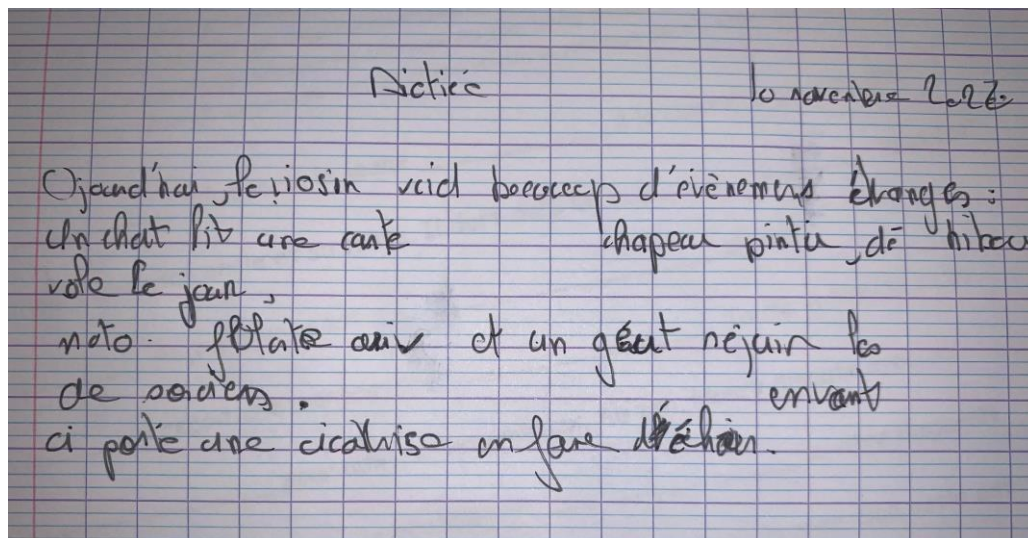 Dictieé 10 novembre 2022
Ojourd'hui, le voisin void beaucoup d'évènemens étranges :
un chat lit une carte chapeau pintu, dé hibou
vole le jour,
moto. arriv et un géant réjoin les
de sorciers. envant
ci porte une cicatrise en fore d'échier.